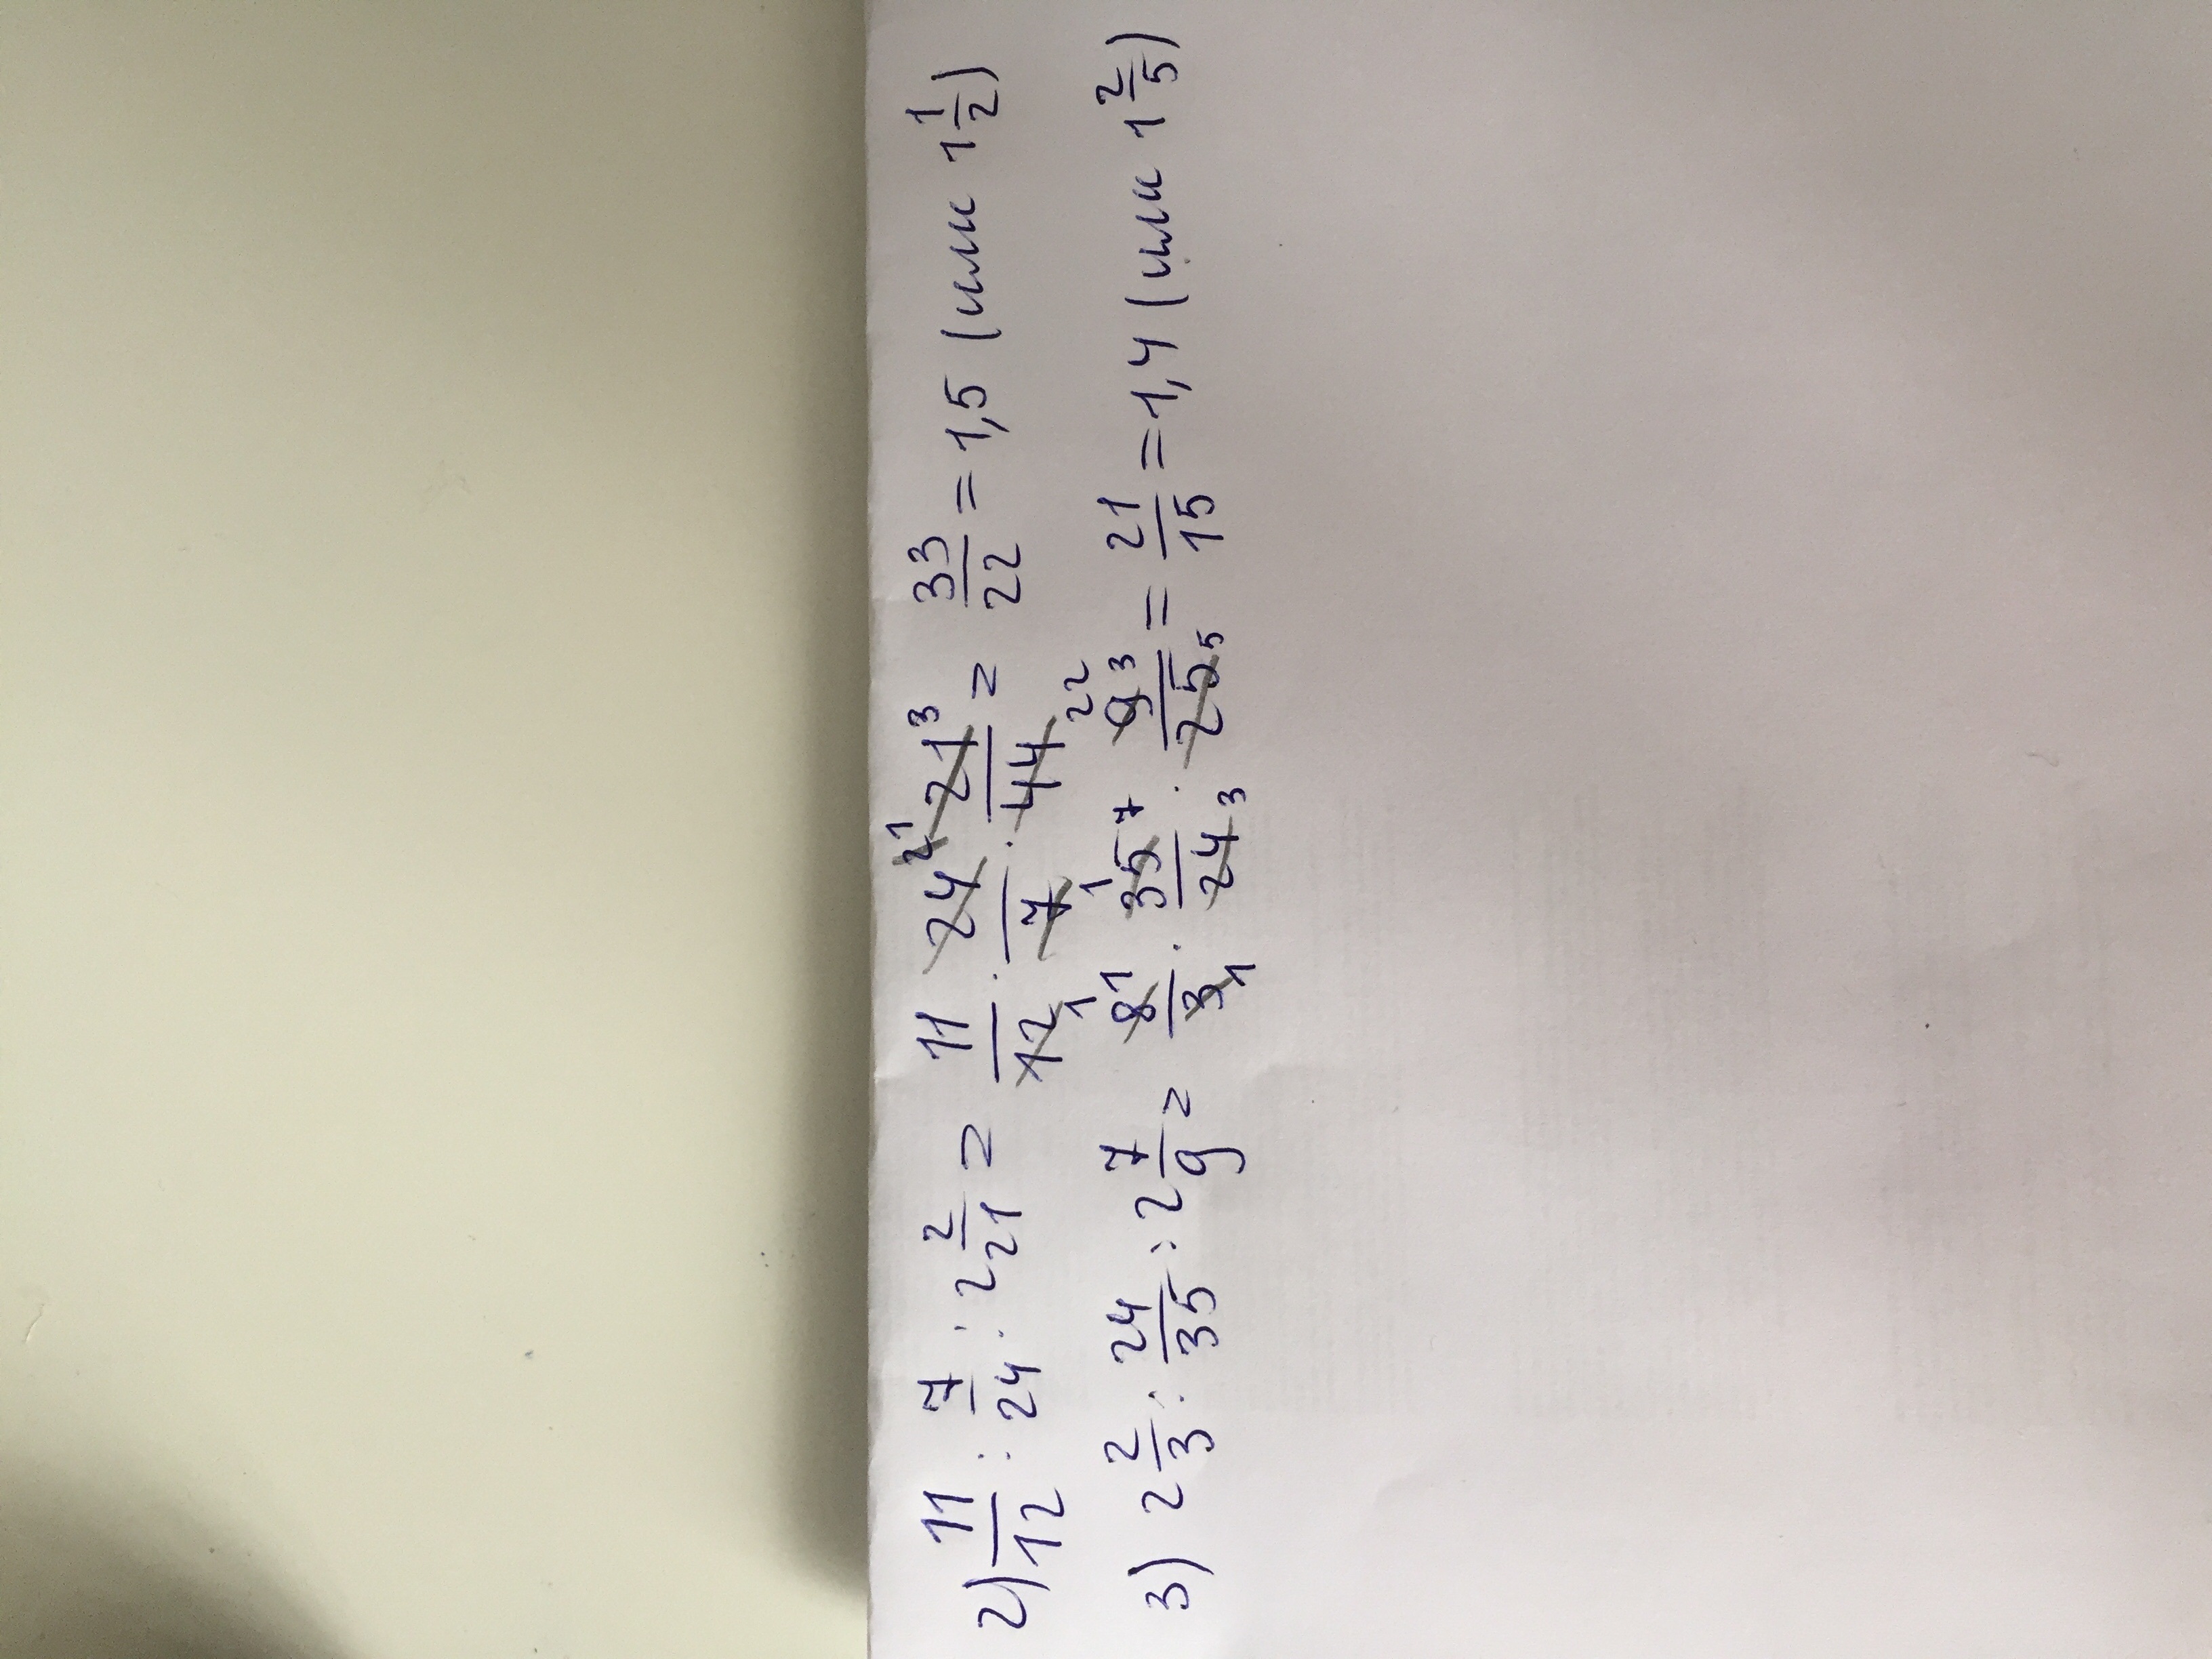 2) 11/12 : 7/24 : 2 2/21 = 11/12 1 · 24 2 1/7 1 · 21 3/44 22 = 33/22 = 1,5 (или 1 1/2)
3) 2 2/3 : 24/35 : 2 7/9 = 8 1/3 1 · 35 7/24 3 · 9 3/25 5 = 21/15 = 1,4 (или 1 2/5)